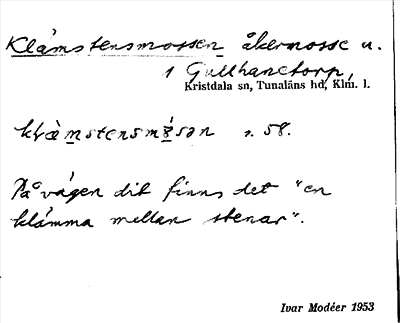 Klämstensmossen åkermosse u.
1 Gullhanetorp,
Kristdala sn, Tunaläns hd, Klm. l.
klæ̀mstensmǻsən s. 58.
På vägen dit finns det "en
klämma mellan stenar".
Ivar Modéer 1953